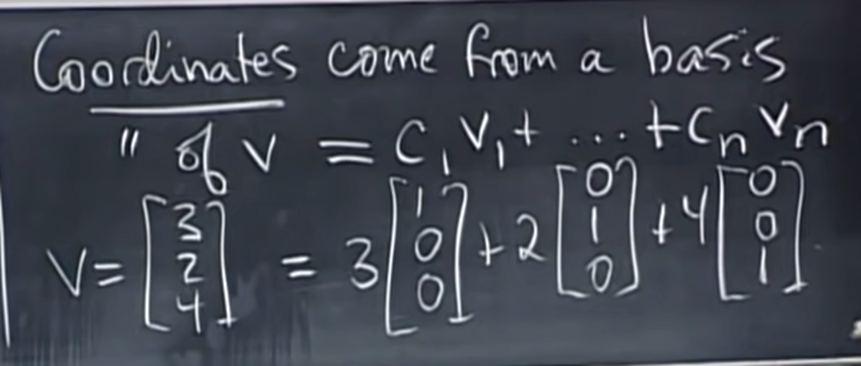 Coordinates come from a basis
" of v = c₁v₁ + ... + cₙvₙ
v = [3 2 4] = 3[1 0 0] + 2[0 1 0] + 4[0 0 1]